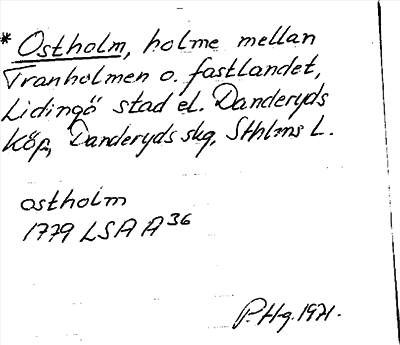 * Ostholm, holme mellan
Tranholmen o. fastlandet,
Lidingö stad el. Danderyds
köp, Danderyds skg, Sthlms L.
ostholm
1779 LSA A 36
P. Hg. 1971.